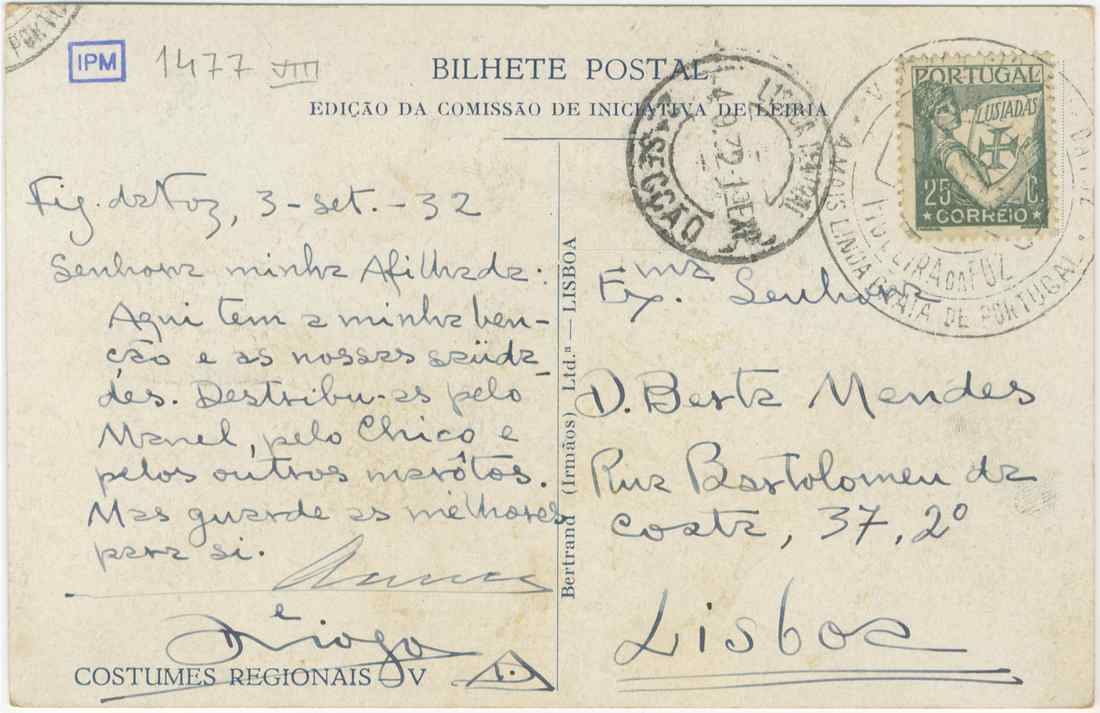 IPM
1477 VIII
BILHETE POSTAL
EDIÇÃO DA COMISSÃO DE INICIATIVA DE LEIRIA
PORTUGAL
LUSIADAS
25 C.
CORREIO
LISBOA CENTRAL
SECÇÃO
FIGUEIRA DA FOZ
A MAIS LINDA PRAIA DE PORTUGAL
Fig. da Foz, 3-set.-32
Senhora minha Afilhada:
Aqui tem a minha ben-
ção e as nossas saüda
des. Destribu-as pelo
Manel, pelo Chico e
pelos outros marôtos.
Mas guarde as melhores
para si.
e
Diogo
COSTUMES REGIONAIS V
Bertrand (Irmãos) Ltd.ª — LISBOA
Ex.ma Senhora
D. Berta Mendes
Rua Bartolomeu da
Costa, 37, 2º
Lisboa